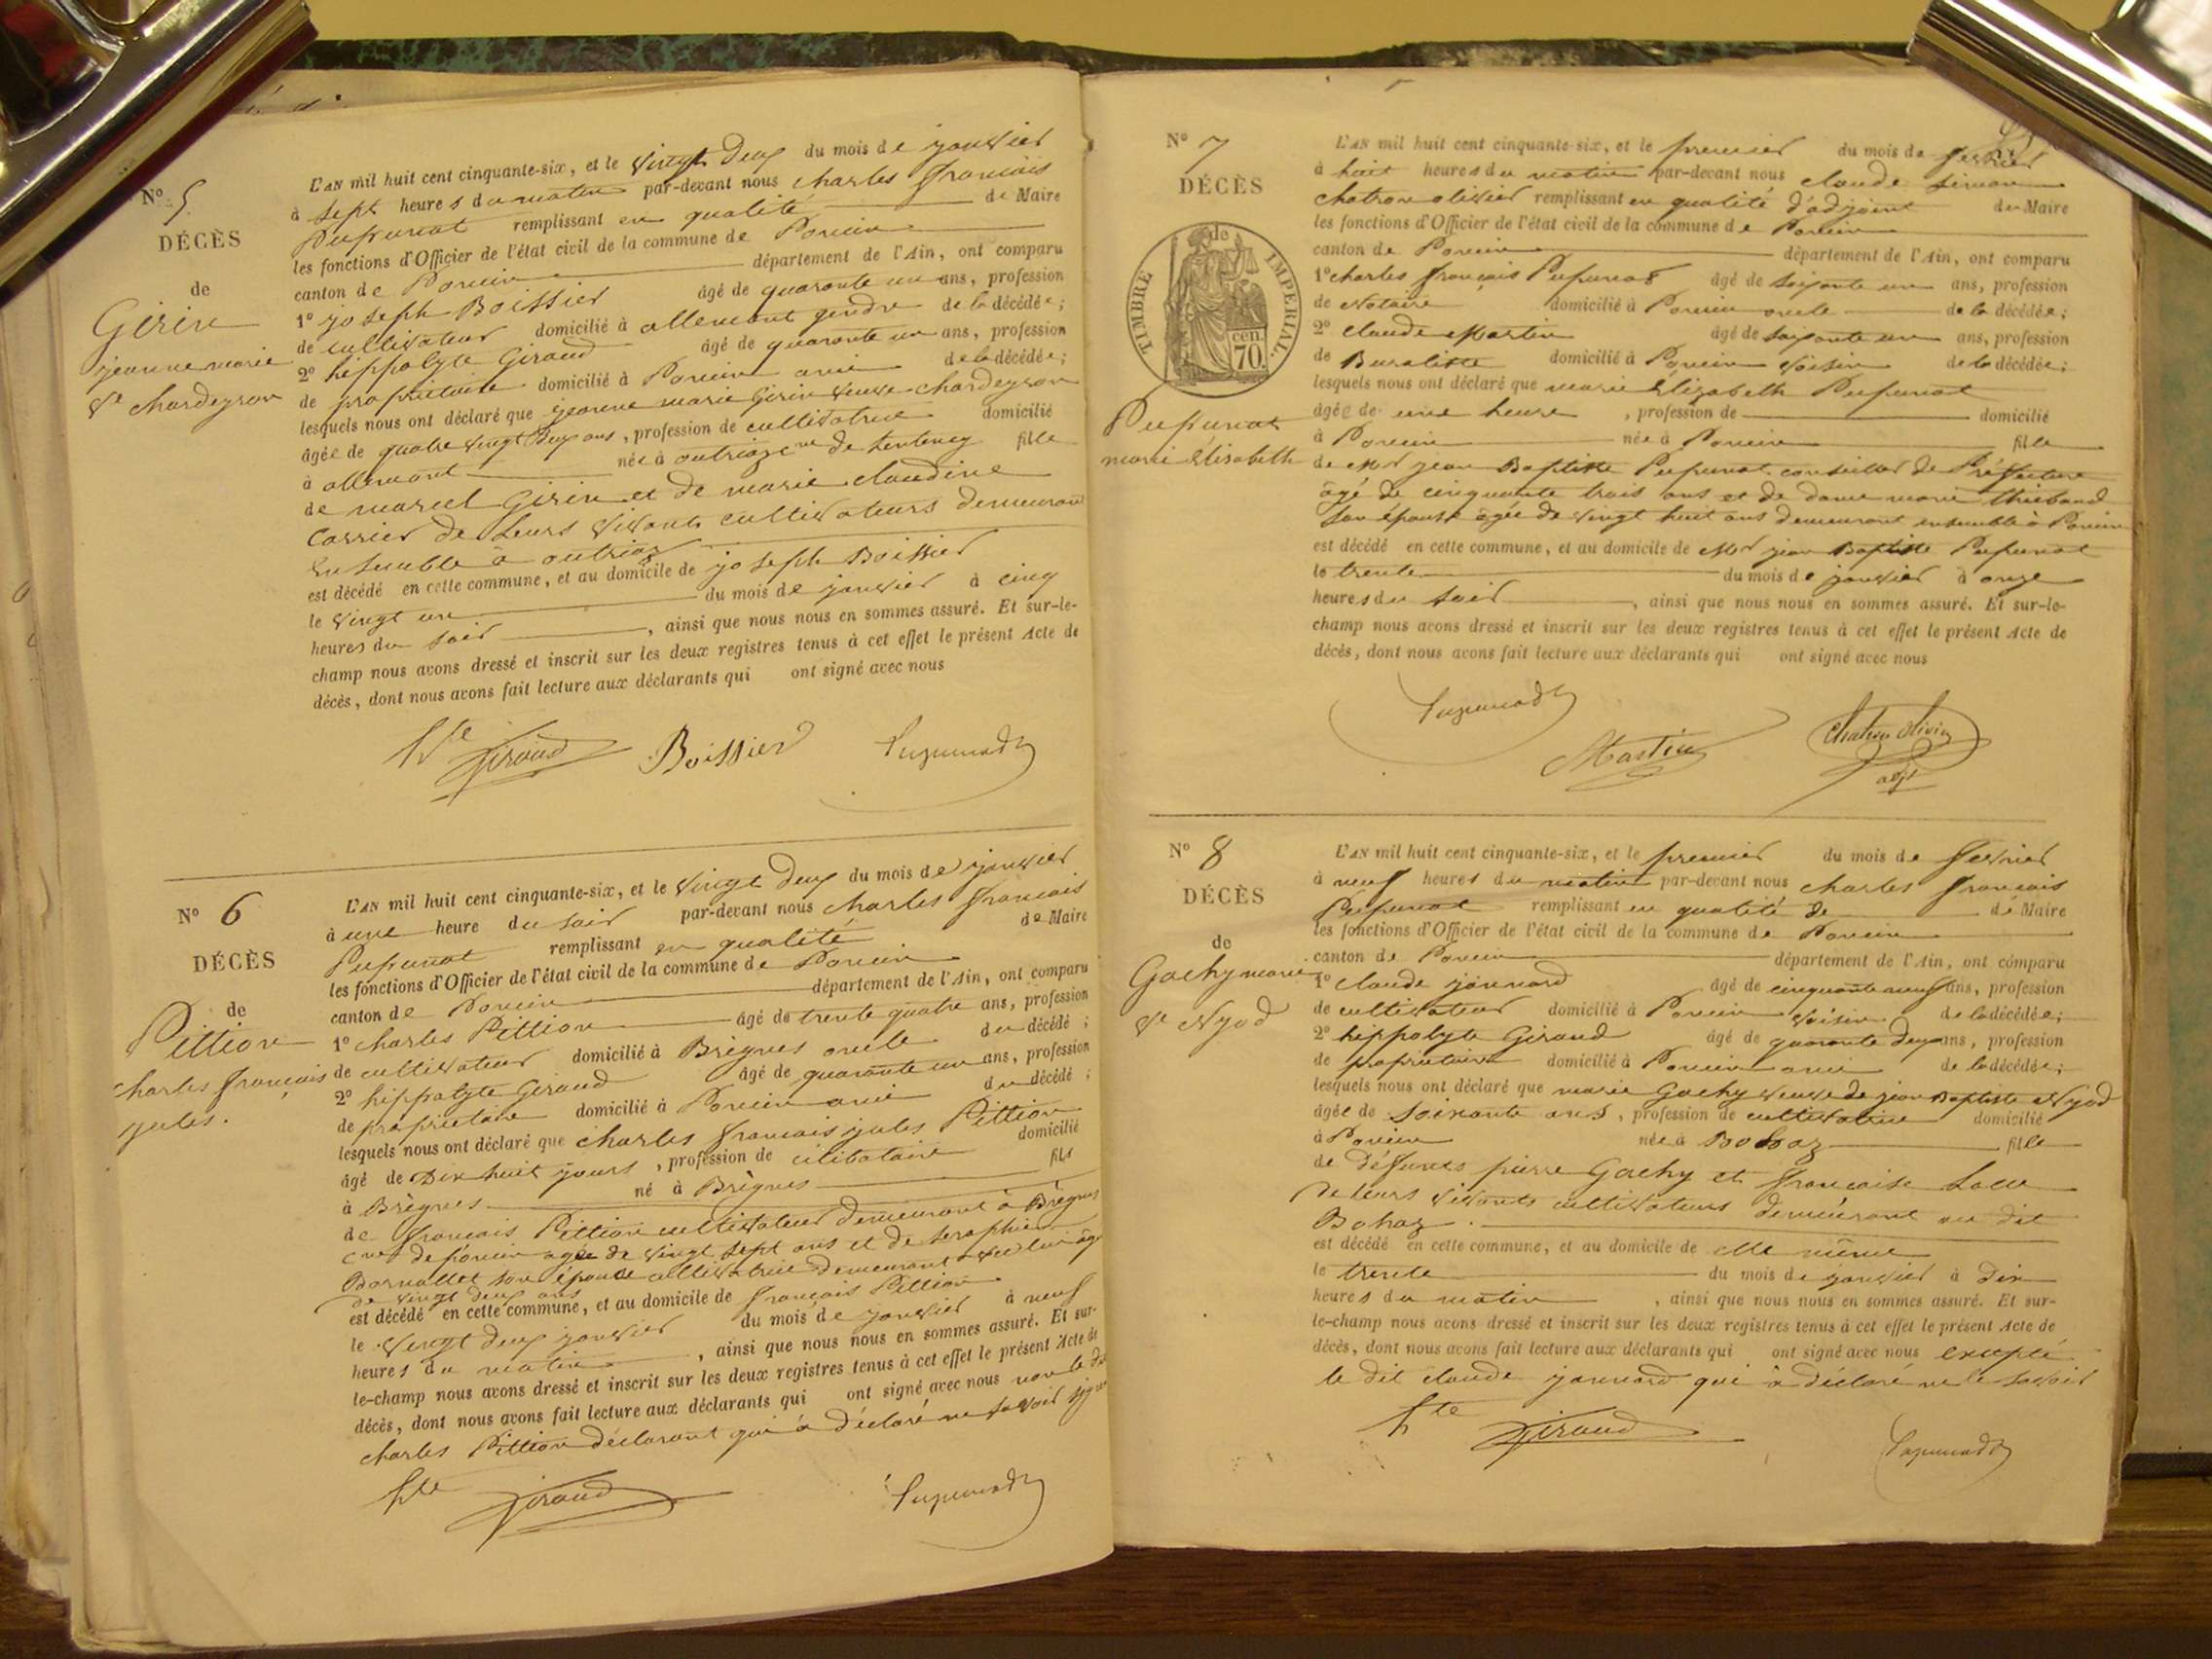 N° 5
DÉCÈS
de
Girin
jeanne marie
Ve chardeyron
L'AN mil huit cent cinquante-six, et le vingt deux du mois de janvier
à sept heures du matin par-devant nous charles françois
Pupunat remplissant en qualité de Maire
les fonctions d'Officier de l'état civil de la commune de Poncin
canton de Poncin département de l'Ain, ont comparu
1° joseph Boissier âgé de quarante un ans, profession
de cultivateur domicilié à allemant gendre de la décédée;
2° hippolyte Giraud âgé de quarante un ans, profession
de propriétaire domicilié à Poncin ami de la décédée;
lesquels nous ont déclaré que jeanne marie Girin veuve chardeyron
âgée de quatre vingt deux ans, profession de cultivatrice domicilié
à allemant née à outriaz de fille
de marcel Girin et de marie claudine
Carrier de leurs vivants cultivateurs demeurant
Ensemble à outriaz
est décédé en cette commune, et au domicile de joseph Boissier
le vingt un du mois de janvier à cinq
heures du soir, ainsi que nous nous en sommes assuré. Et sur-le-
champ nous avons dressé et inscrit sur les deux registres tenus à cet effet le présent Acte de
décès, dont nous avons fait lecture aux déclarants qui ont signé avec nous
hte Giraud Boissier Pupunat
N° 6
DÉCÈS
de
Pittion
charles françois
jules.
L'AN mil huit cent cinquante-six, et le vingt deux du mois de janvier
à une heure du soir par-devant nous charles françois
Pupunat remplissant en qualité de Maire
les fonctions d'Officier de l'état civil de la commune de Poncin
canton de Poncin département de l'Ain, ont comparu
1° charles Pittion âgé de trente quatre ans, profession
de cultivateur domicilié à Brègnes oncle du décédé;
2° hippolyte Giraud âgé de quarante un ans, profession
de propriétaire domicilié à Poncin ami du décédé;
lesquels nous ont déclaré que charles francois jules Pittion
âgé de Dix huit jours, profession de célibataire domicilié
à Brègnes né à Brègnes fils
de francois Pittion cultivateur demeurant à Brègnes
cne de poncin agée de vingt sept ans et de seraphie
son épouse cultivatrice demeurant avec lui âgée
de vingt deux ans
est décédé en cette commune, et au domicile de françois Pittion
le vingt deux janvier du mois de janvier à neuf
heures du matin, ainsi que nous nous en sommes assuré. Et sur-
le-champ nous avons dressé et inscrit sur les deux registres tenus à cet effet le présent Acte de
décès, dont nous avons fait lecture aux déclarants qui ont signé avec nous non le dit
charles Pittion déclarant qui a déclaré ne savoir signer
hte Giraud Pupunat
N° 7
DÉCÈS
de
TIMBRE IMPERIAL.
70. cen.
Pupunat
marie Elisabeth
L'AN mil huit cent cinquante-six, et le premier du mois de fevrier
à huit heures du matin par-devant nous claude simon
chatron olivier remplissant en qualité d'adjoint du Maire
les fonctions d'Officier de l'état civil de la commune de Poncin
canton de Poncin département de l'Ain, ont comparu
1° charles françois Pupunat âgé de soixante un ans, profession
de Notaire domicilié à Poncin oncle de la décédée;
2° claude Martin âgé de soixante un ans, profession
de Buraliste domicilié à Poncin voisin de la décédée;
lesquels nous ont déclaré que marie Elizabeth Pupunat
âgée de une heure, profession de domicilié
à Poncin née à Poncin fille
de Mr jean Baptiste Pupunat conseiller de Préfecture
âgé de cinquante trois ans et de dame marie thiebaud
son épouse agée de vingt huit ans demeurant ensemble à Poncin
est décédé en cette commune, et au domicile de Mr jean Baptiste Pupunat
le trente du mois de janvier à onze
heures du soir, ainsi que nous nous en sommes assuré. Et sur-le-
champ nous avons dressé et inscrit sur les deux registres tenus à cet effet le présent Acte de
décès, dont nous avons fait lecture aux déclarants qui ont signé avec nous
Pupunat Martin Chatron Olivier
adjt
N° 8
DÉCÈS
de
Gachy marie
Ve Nyod
L'AN mil huit cent cinquante-six, et le premier du mois de fevrier
à neuf heures du matin par-devant nous charles françois
Pupunat remplissant en qualité de de Maire
les fonctions d'Officier de l'état civil de la commune de Poncin
canton de Poncin département de l'Ain, ont comparu
1° claude jannard âgé de cinquante neuf ans, profession
de cultivateur domicilié à Poncin voisin de la décédée;
2° hippolyte Giraud âgé de quarante deux ans, profession
de propriétaire domicilié à Poncin ami de la décédée;
lesquels nous ont déclaré que marie Gachy veuve de jean Baptiste Nyod
âgée de soixante ans, profession de cultivatrice domicilié
à Poncin née à Bohaz fille
de défunts pierre Gachy et françoise
de leurs vivants cultivateurs demeurant au dit
Bohaz.
est décédé en cette commune, et au domicile de elle même
le trente du mois de janvier à dix
heures du matin, ainsi que nous nous en sommes assuré. Et sur-
le-champ nous avons dressé et inscrit sur les deux registres tenus à cet effet le présent Acte de
décès, dont nous avons fait lecture aux déclarants qui ont signé avec nous excepté
le dit claude jannard qui à déclaré ne le savoir
hte Giraud Pupunat